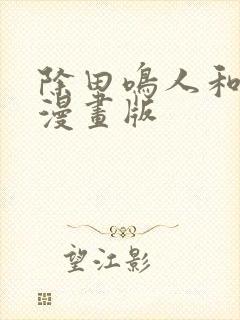 除田鳴人和
漫畫版
望江影